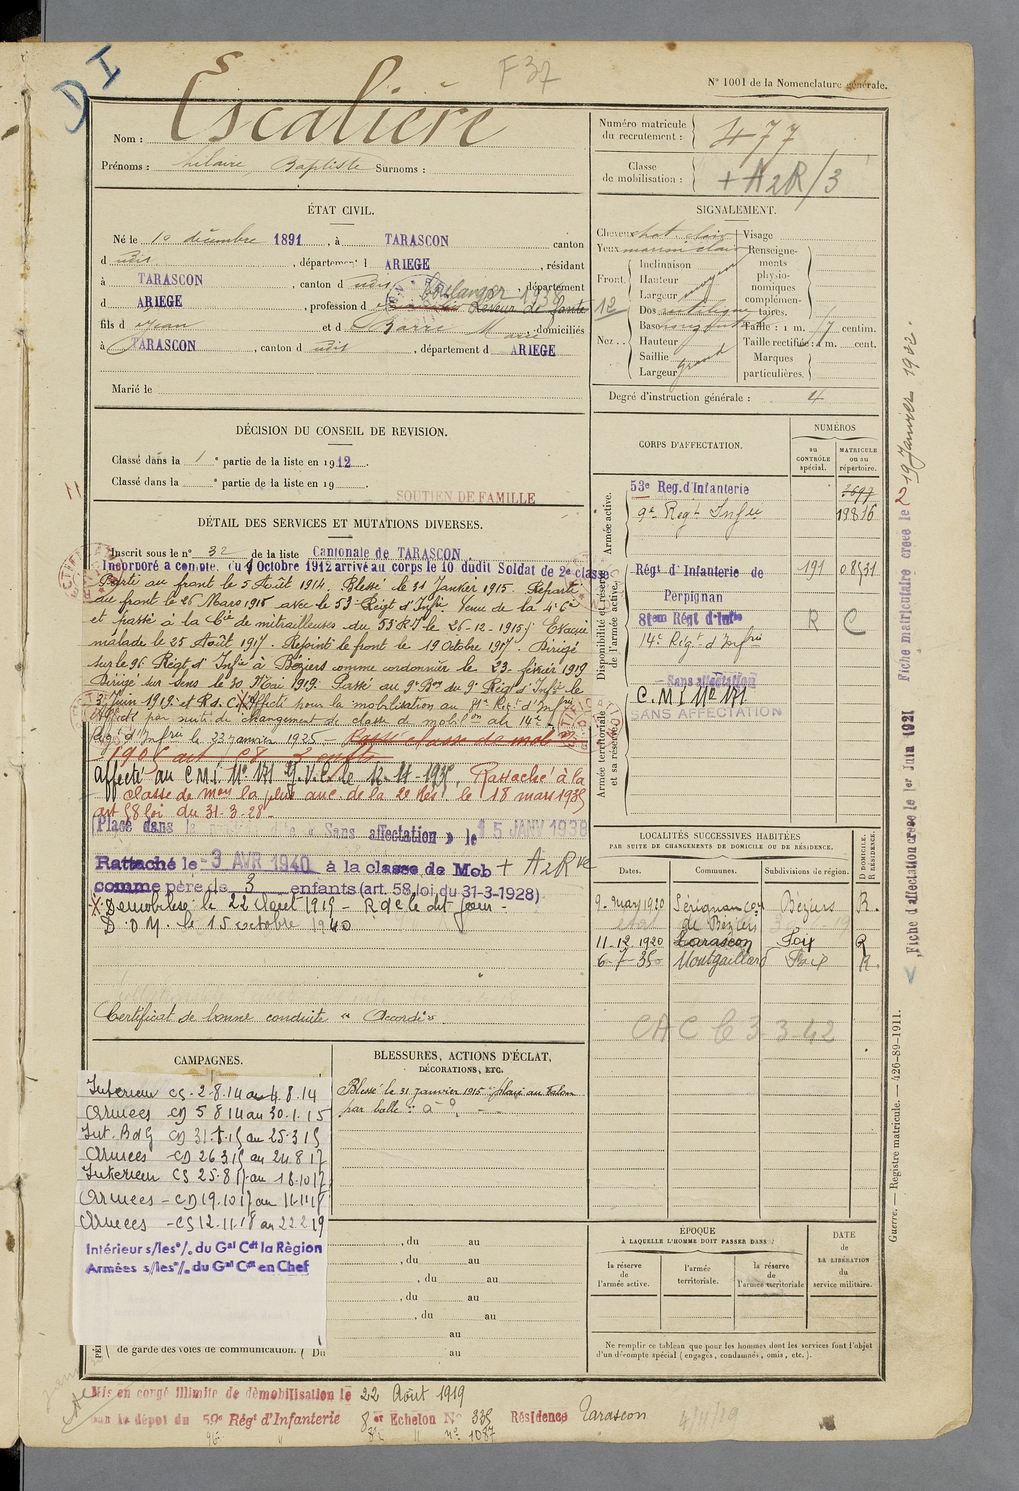 D I
F 37
N° 1001 de la Nomenclature générale.
Nom : Escalière
Prénoms : hilaire, Baptiste Surnoms :
Numéro matricule du recrutement : 477
Classe de mobilisation : + A2R/3
ÉTAT CIVIL.
Né le 10 décembre 1891, à TARASCON canton
d udit, département d ARIEGE, résidant
à TARASCON, canton d udit, département
d ARIEGE, profession d
Boulanger
fils d Jean et d Barre Marie, domiciliés
à TARASCON, canton d udit, département d ARIEGE
Marié le
SIGNALEMENT.
Cheveux chat. clair
Yeux marron clair
Front. Inclinaison
Hauteur moyen
Largeur
Nez . . Dos rectiligne
Base
Hauteur
Saillie grand
Largeur
12
Visage
Renseignements physionomiques complémentaires.
Taille : 1 m. centim.
Taille rectifiée : 1 m. cent.
Marques particulières.
Degré d'instruction générale : 4
DÉCISION DU CONSEIL DE REVISION.
Classé dans la 1e partie de la liste en 1912.
Classé dans la e partie de la liste en 19
SOUTIEN DE FAMILLE
11
DÉTAIL DES SERVICES ET MUTATIONS DIVERSES.
Inscrit sous le n° 32 de la liste Cantonale de TARASCON
Incorporé a compte. du Octobre 1912 arrivé au corps le 10 dudit Soldat de 2e classe
Parti au front le 5 Août 1914. Blessé le 31 Janvier 1915. Reparti
au front le 26 Mars 1915 avec le 53e Régt d'Infie Venu de la 4e Cie
et passé à la Cie de mitrailleuses du 53e RI le 26-12-1915. Evacué
malade le 25 Août 1917. Rejoint le front le 19 Octobre 1917. Dirigé
sur le 96 Régt d'Infie à Béziers comme cordonnier le 23 février 1919
Dirigé sur Sens le 30 Mai 1919. Passé au 9e Bon du 9e Régt d'Infie le
3 Juin 1919 et R.d.C. X Affecté pour la mobilisation au Regt d'Infrie
Affecté par suite de changement de classe de mobon au 14e
Regt d'Infrie le 23 janvier 1925 - Passé classe de mob on
affecté au C.M.I. N° 171 Rattaché à la
classe de Mon la plus anc. de la 2e Res. le 18 mars 1935
art 58 loi du 31-3-28-
Placé dans la « Sans affectation » le 15 JANV 1938
Rattaché le -3 AVR 1940 à la classe de Mob + A2Rve
comme père de 3 enfants (art. 58, loi du 31-3-1928)
X Démobilisé le 22 Aout 1919 - R de C le dit jour -
D.O.M. le 15 octobre 1940
Certificat de bonne conduite « Accordé ».
CORPS D'AFFECTATION.
NUMÉROS
au CONTRÔLE spécial.
MATRICULE ou au répertoire.
Armée active.
53e Reg. d'Infanterie 3697
9e Regt Infie 19816
Disponibilité et réserve de l'armée active.
Régt d'Infanterie de Perpignan 191 08531
8tem Régt d'Infie R C
14e Régt d'Infrie
Sans affectation
Armée territoriale et sa réserve.
C.M.I N° 171
SANS AFFECTATION
LOCALITÉS SUCCESSIVES HABITÉES
PAR SUITE DE CHANGEMENTS DE DOMICILE OU DE RÉSIDENCE.
Dates. Communes. Subdivisions de région. D DOMICILE. R RÉSIDENCE.
9 - mars 1920 Sérignan con de Béziers Béziers R.
11-12-1920 Tarascon Foix R
6-7-35- Montgaillard Foix R.
CAC le 3-3-42
CAMPAGNES.
Intérieur CS. 2-8-14 au 4.8.14
Armées CD 5 8 14 au 30.1.15
Int. BdG CD 31.1.15 au 25.3.15
Armées CD 26 3 15 au 24.8.17
Intérieur CS 25.8.17 au 18.10.17
Armées - CD 19.10 17 au 11.11.18
Armées - CS 12.11.18 au 22.8.19
Intérieur s/les °/. du Gal Cdt la Région
Armées s/les °/. du Gal Cdt en Chef
de garde des voies de communication. Du
BLESSURES, ACTIONS D'ÉCLAT, DÉCORATIONS, ETC.
Blessé le 31 Janvier 1915 : plaie au talon
par balle :
, du au
, du au
, du au
, du au
, du au
au
au
ÉPOQUE
À LAQUELLE L'HOMME DOIT PASSER DANS :
la réserve de l'armée active.
l'armée territoriale.
la réserve de l'armée territoriale
DATE de LA LIBÉRATION du service militaire.
Ne remplir ce tableau que pour les hommes dont les services font l'objet
d'un décompte spécial (engagés, condamnés, omis, etc.).
Mis en congé illimité de démobilisation le 22 Août 1919
par le dépôt du 59e Régt d'Infanterie 8er Echelon N° 335 Résidence Tarascon
n° 1087
Fiche matriculaire creee le 19 Janvier 1922.
Fiche d'affectation creee le 1er Juin 1921
Guerre. — Registre matricule. — 426-89-1911.